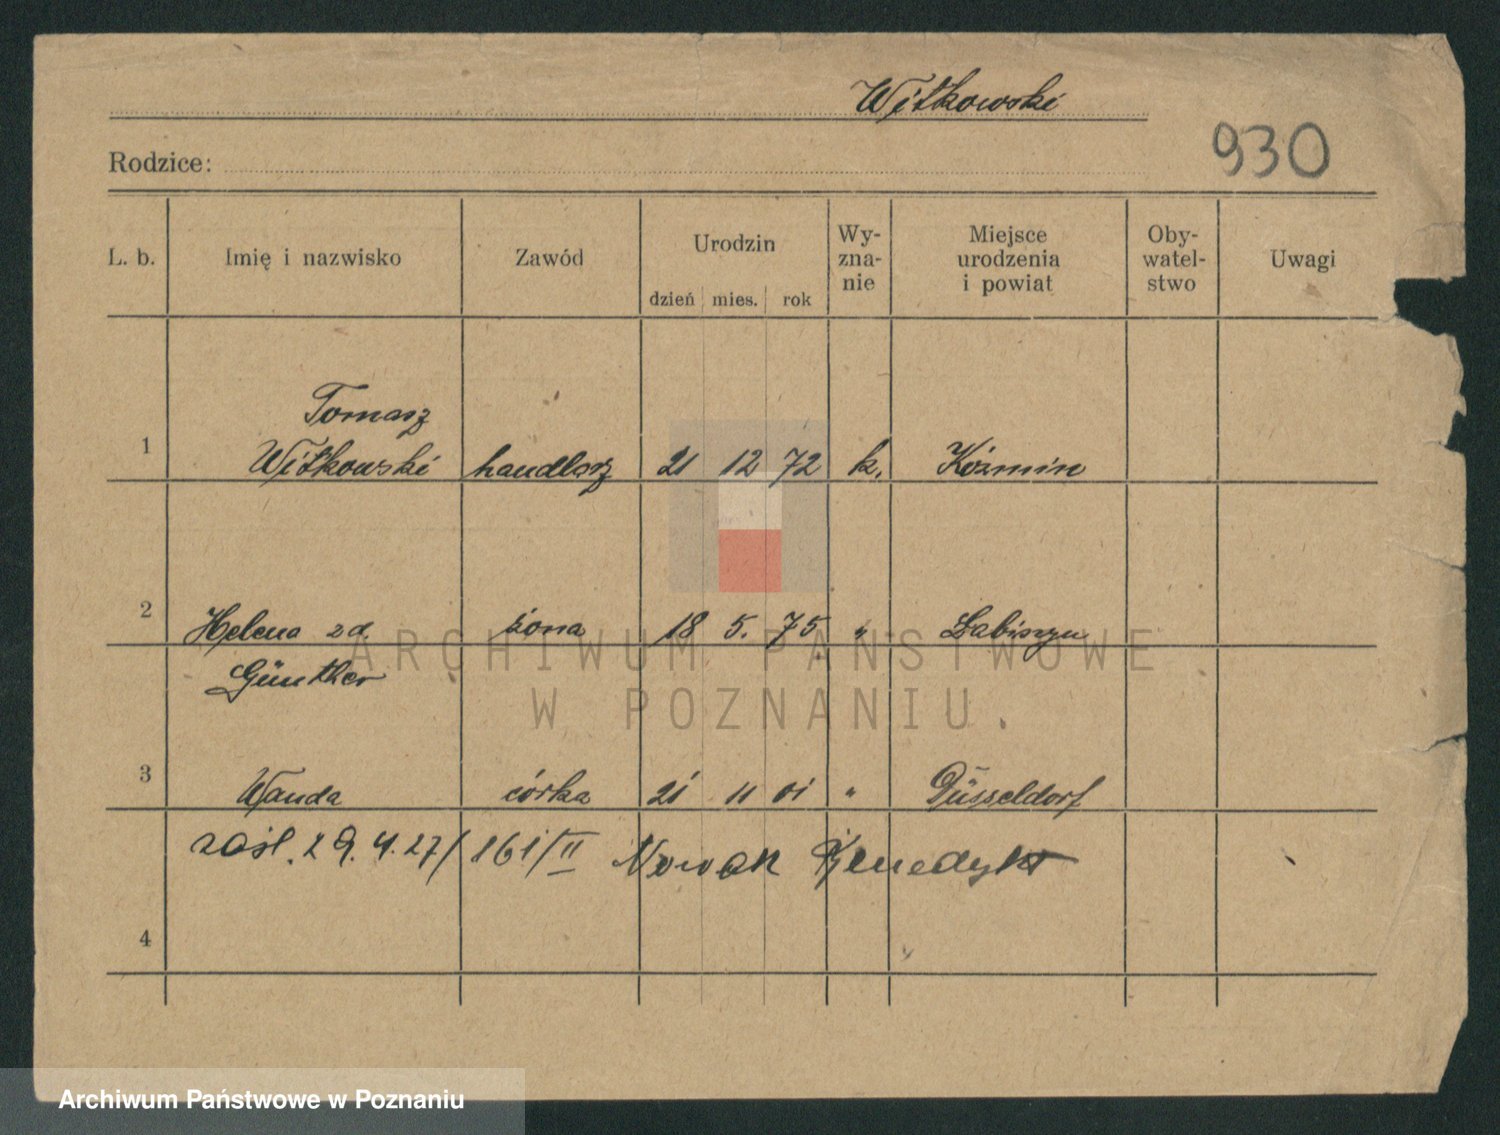 Witkowski
930
Rodzice:
L. b. Imię i nazwisko Zawód Urodzin dzień mies. rok Wy-zna-nie Miejsce urodzenia i powiat Oby-watel-stwo Uwagi
Tomasz
1 Witkowski handlarz 21 12 72 k. Koźmin
2 Helena zd. żona 18 5. 75 " Łabiszyn
Günther
3 Wanda córka 21 11 01 " Düsseldorf
zaśl. 29.4.27/ 161/II Nowak Benedykt
4
ARCHIWUM PAŃSTWOWE
W POZNANIU.
Archiwum Państwowe w Poznaniu